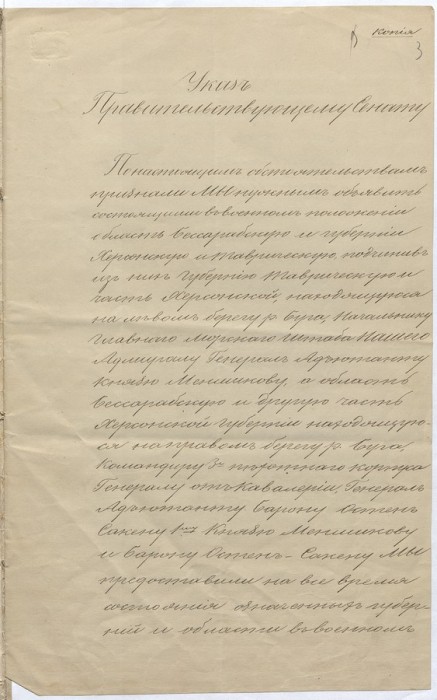 Копія
3
Указъ
Правительствующему Сенату
По настоящимъ обстоятельствамъ
признали МЫ нужнымъ объявить
состоящими въ военномъ положеніи
область Бессарабскую и губерніи
Херсонскую и Таврическую, подчинивъ
изъ нихъ губернію Таврическую и
часть Херсонской, находящуюся
на лѣвомъ берегу р. Буга, Начальнику
Главнаго Морскаго Штаба Нашего
Адмиралу Генералъ Адъютанту
Князю Меншикову, а область
Бессарабскую и другую часть
Херсонской губерніи находящую-
ся на правомъ берегу р. Буга,
Командиру 3го пѣхотнаго корпуса
Генералу отъ Кавалеріи, Генералъ
Адъютанту Барону Остенъ
Сакену 1му Князю Меншикову
и Барону Остенъ-Сакену МЫ
предоставили на все время
состоянія означенныхъ губер-
ній и области въ военномъ